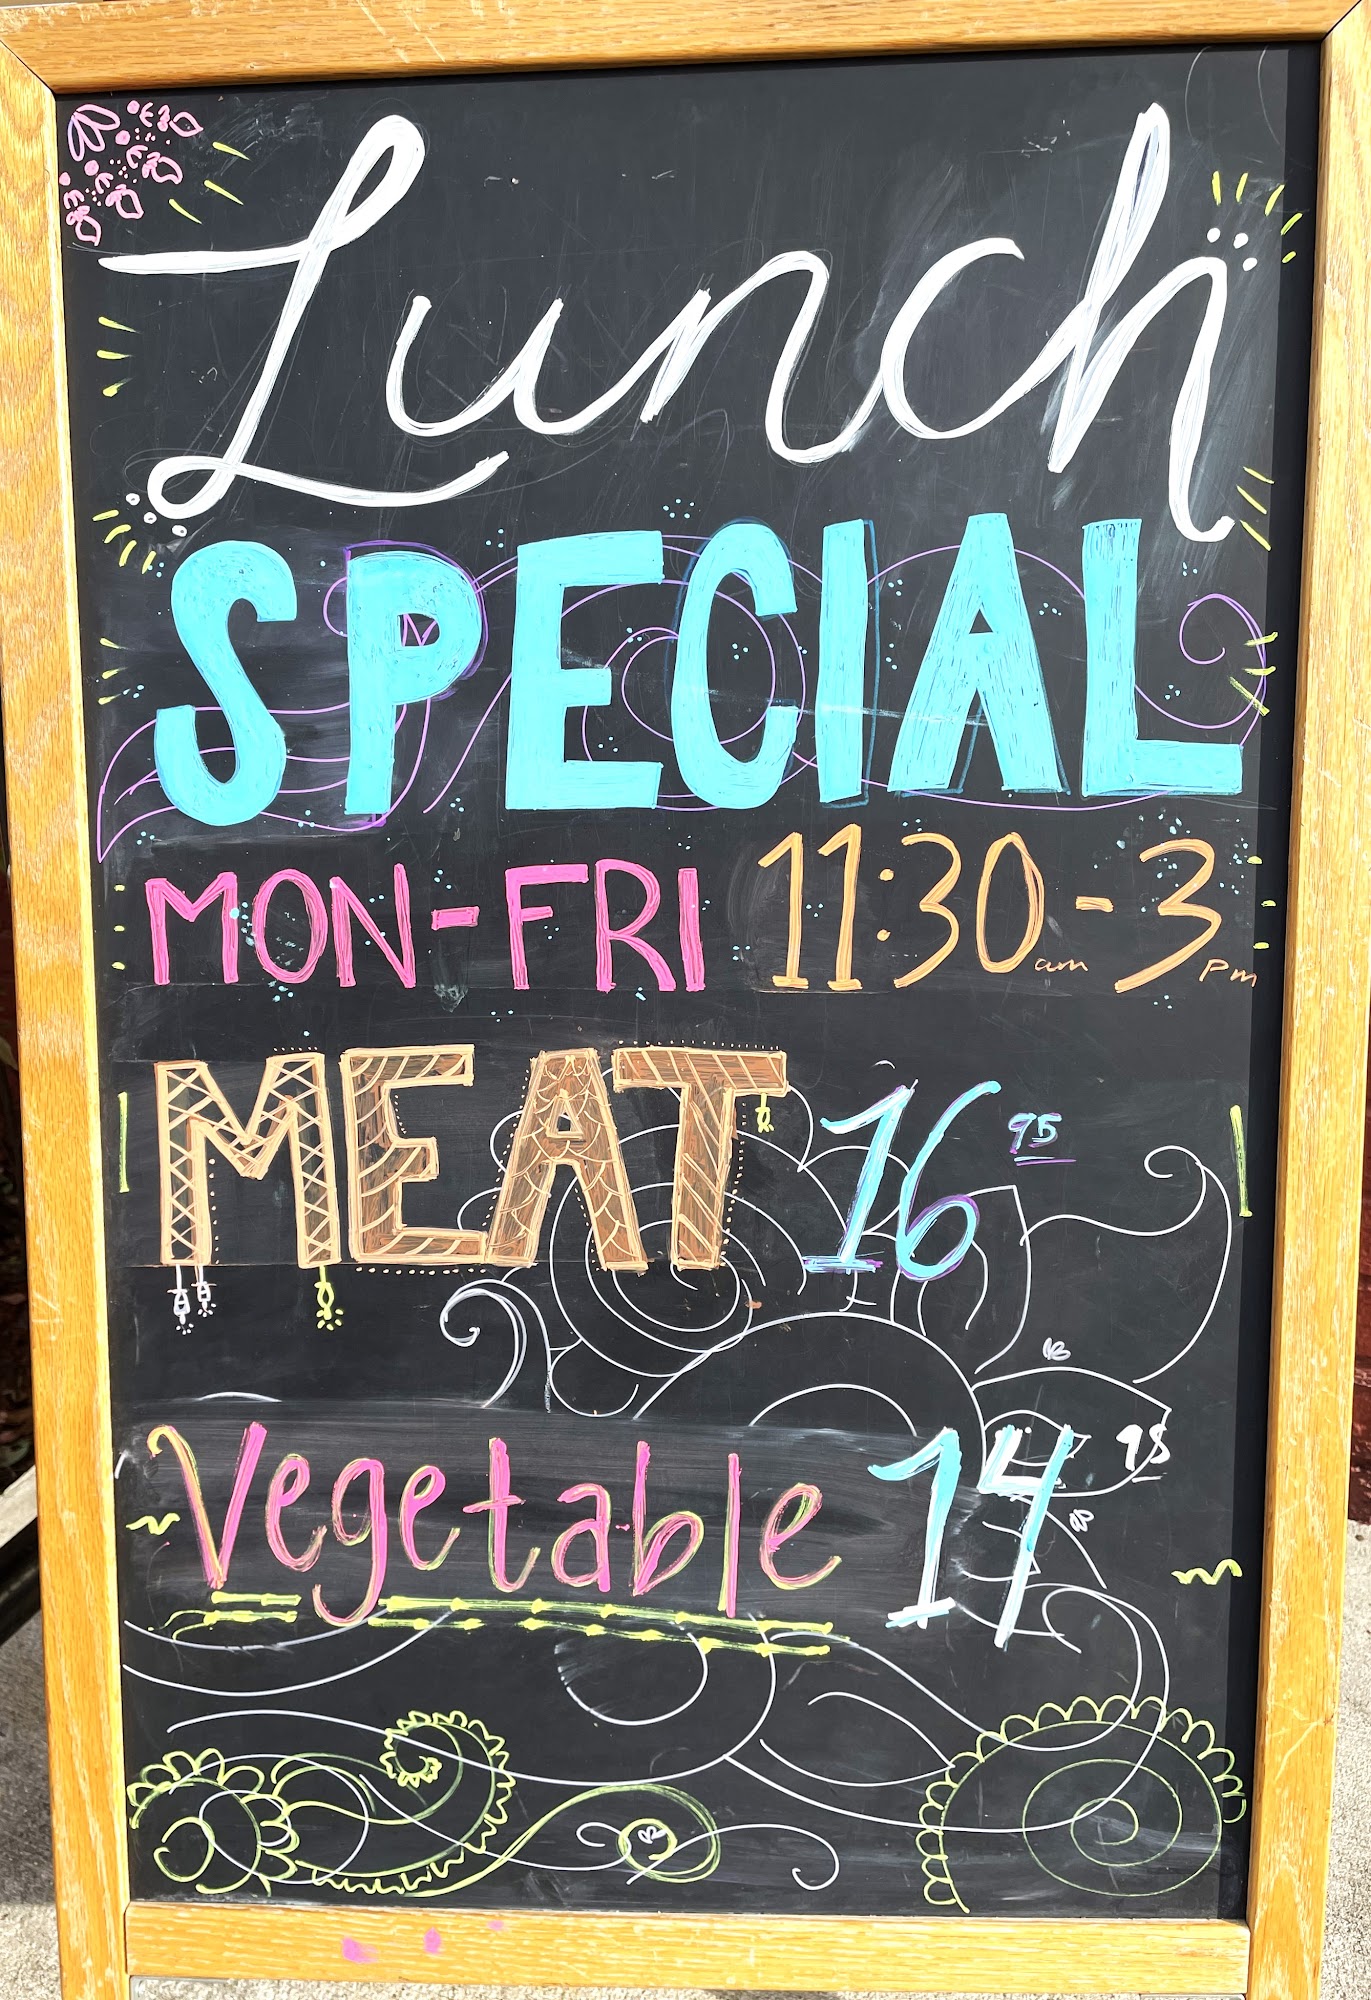 Lunch
SPECIAL
MON-FRI 11:30am - 3pm
MEAT 16 95
Vegetable 14 95